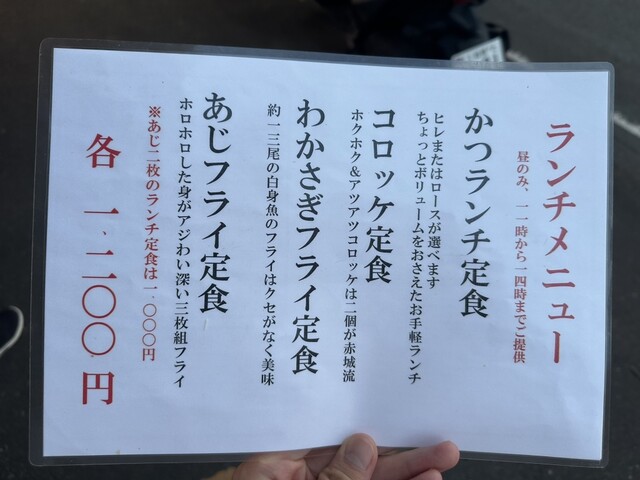 ランチメニュー
昼のみ、一一時から一四時までご提供
かつランチ定食
ヒレまたはロースが選べます
ちょっとボリュームをおさえたお手軽ランチ
コロッケ定食
ホクホク&アツアツコロッケは二個が赤城流
わかさぎフライ定食
約一三尾の白身魚のフライはクセがなく美味
あじフライ定食
ホロホロした身がアジわい深い三枚組フライ
※あじ二枚のランチ定食は一、〇〇〇円
各 一、二〇〇円